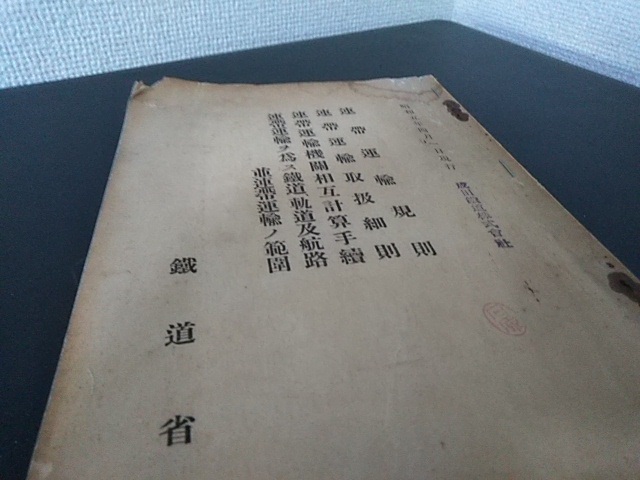 昭和五年四月一日現行
成田鐵道株式會社
連帶運輸規則
連帶運輸取扱細則
連帶運輸機關相互計算手續
連帶運輸ヲ爲ス鐵道軌道及航路
並連帶運輸ノ範圍
鐵道省